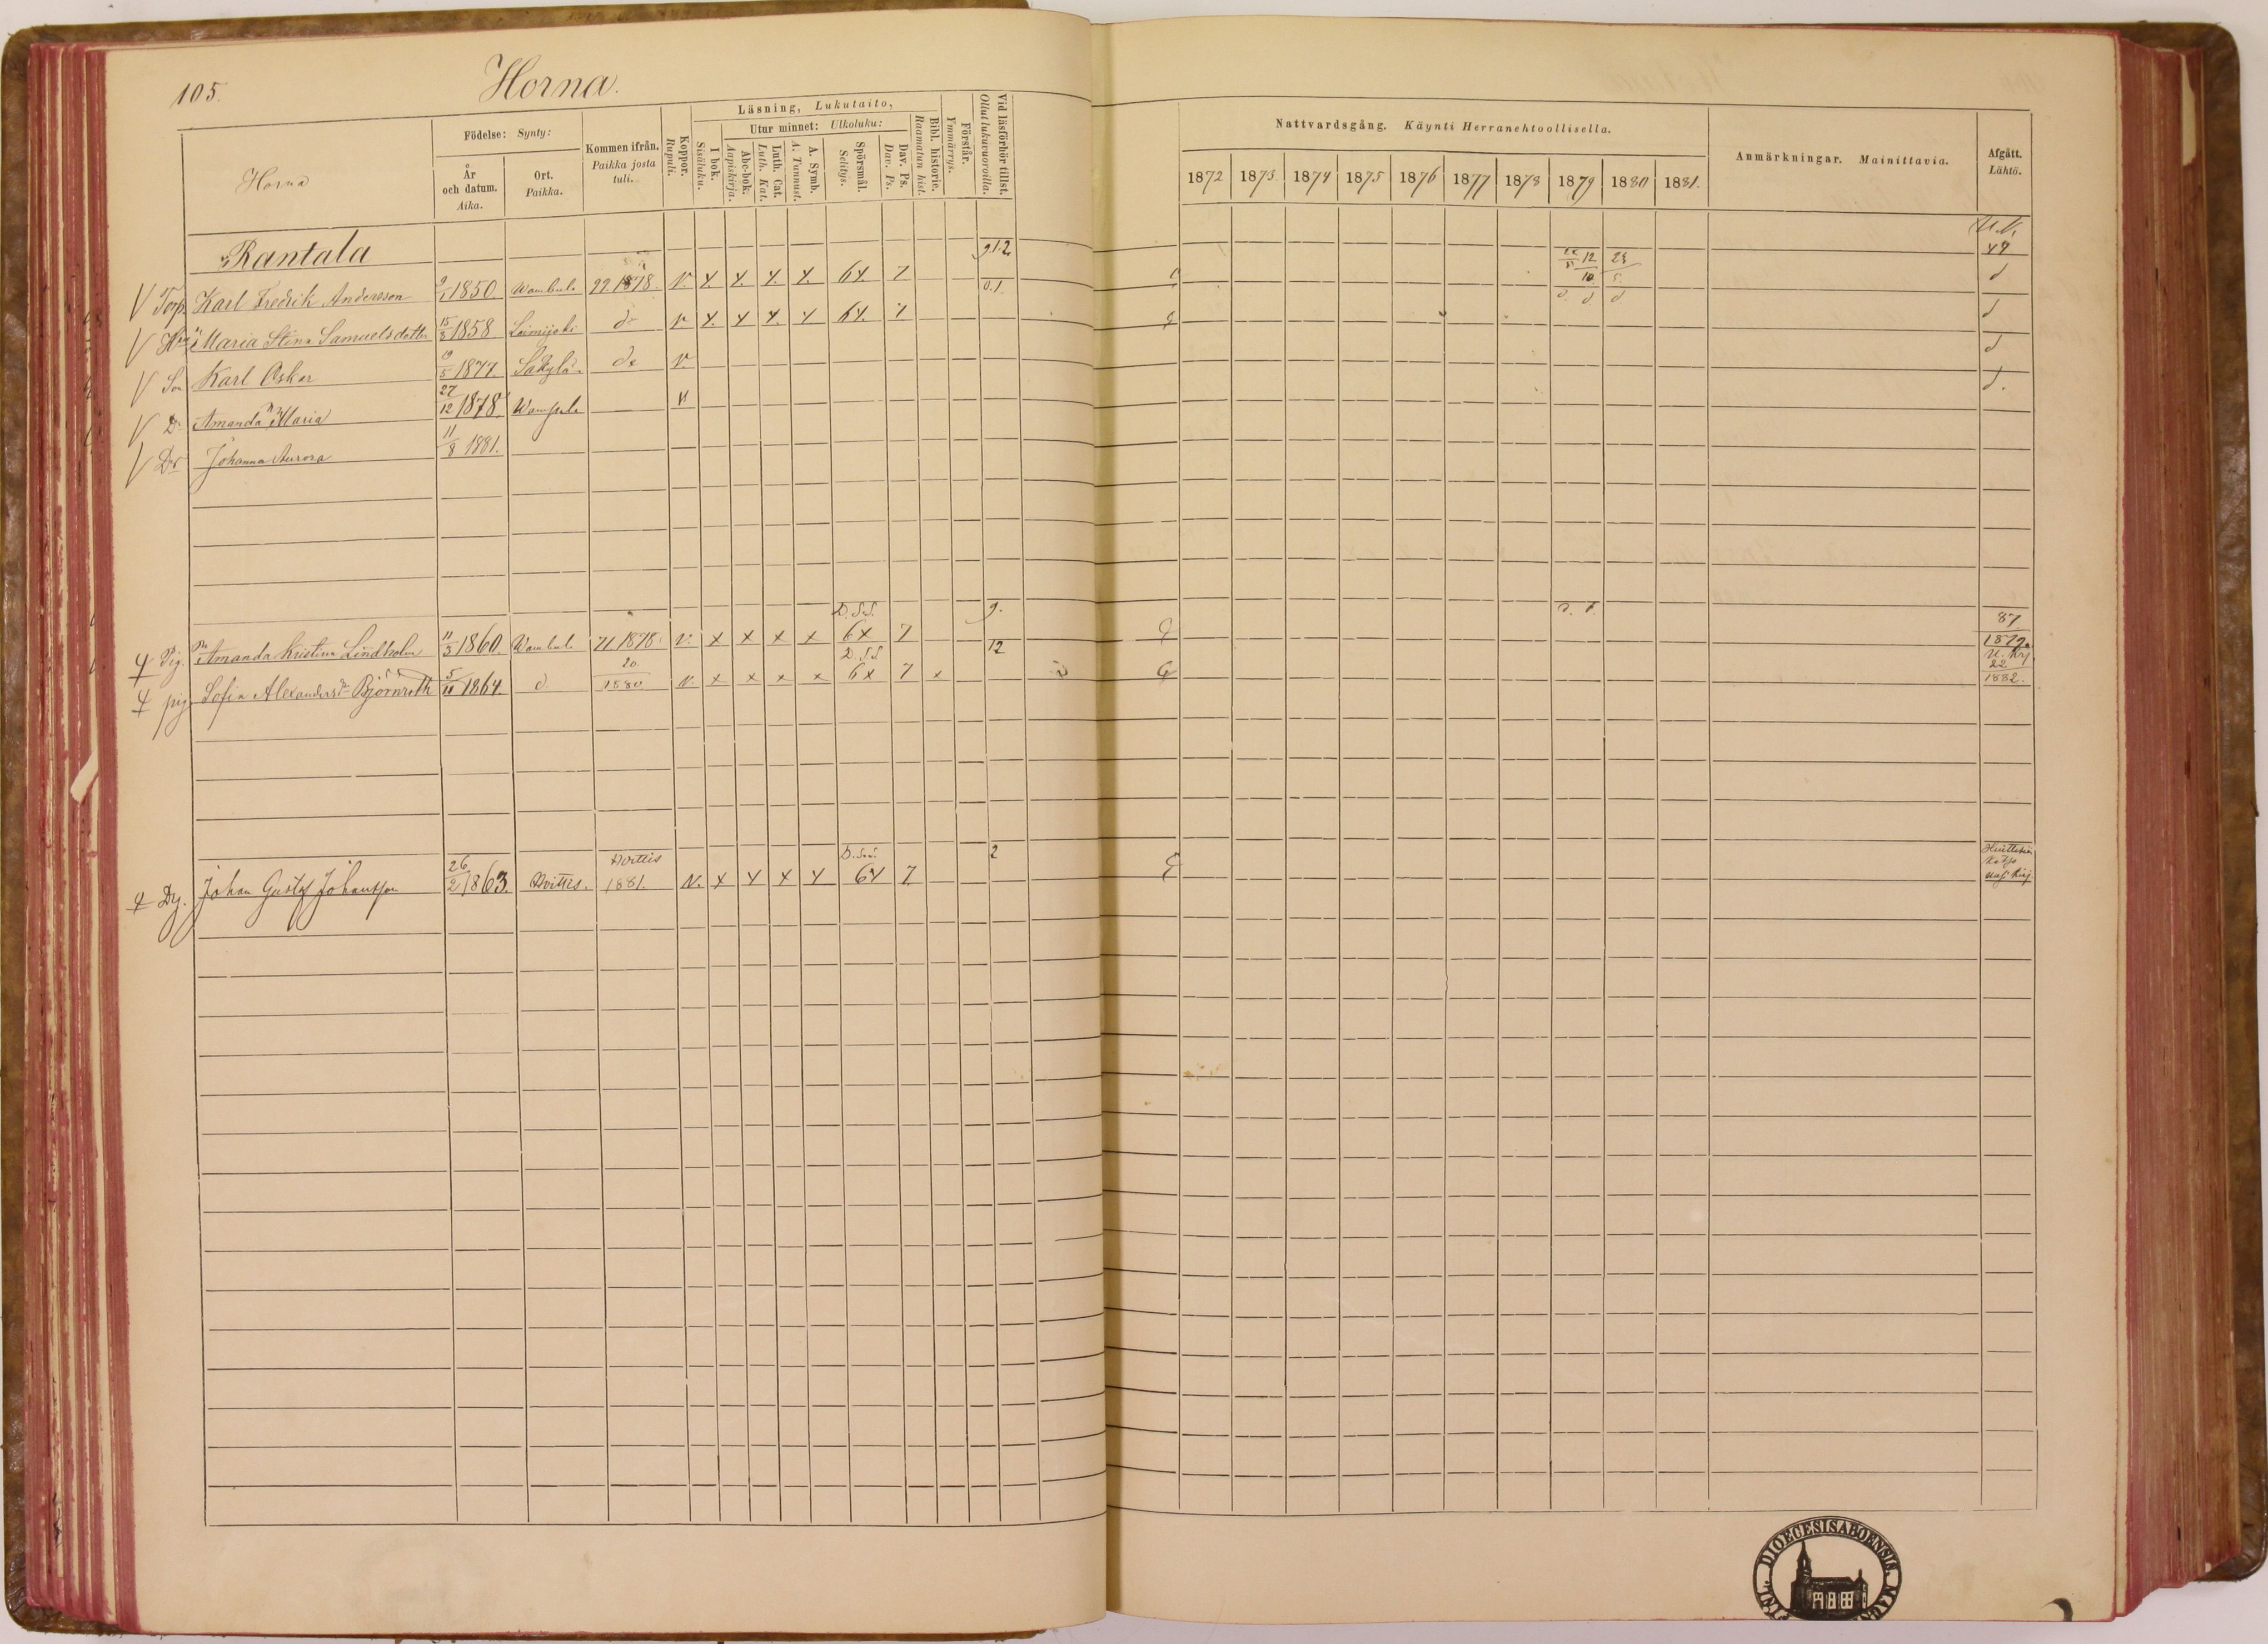 105.
Horna.
Horna
Födelse: Synty:
År och datum. Aika.
Ort. Paikka.
Kommen ifrån. Paikka josta tuli.
Koppor. Rupuli.
Läsning, Lukutaito,
I bok. Sisäluku.
Utur minnet: Ulkoluku:
Abc-bok. Aapiskirja.
Luth. Cat. Luth. Kat.
A. Symb. A. Tunnust.
Spörsmål. Selitys.
Dav. Ps. Dav. Ps.
Bibl. historie. Raamatun hist.
Förstår. Ymmärrys.
Vid läsförhör tillst. Ollut lukuvuoroilla.
Nattvardsgång. Käynti Herranehtoollisella.
1872 1873 1874 1875 1876 1877 1878 1879 1880 1881.
Anmärkningar. Mainittavia.
Afgått. Lähtö.
Rantala 9.1.2
Torp. Karl Fredrik Andersson 1850 Wambula 22 1878 v x x x x 6x 7
Maria Stina Samuelsdotter 15/3 1858 Loimijoki do v x x x x 6x 7
Son Karl Oskar 19/5 1877 Säkylä do v
D. Amanda Maria 27/12 1878 Wampula
Dr Johanna Aurora 11/8 1881.
D.S.S. 9. 87
Pig. Amanda Kristina Lindholm 11/3 1860 Wambula 71 1878 v. x x x x 6x 7 12 1879.
D.S.S. 22
pig. Sofia Alexandersd. Björnroth 5/11 1864 d. 20 1880 v. x x x x 6x 7 x 1882.
Hvittis D.S.S. 2
Dr. Johan Gustaf Johansson 26/2 1863. Hvittis. 1881. v. x x x x 6x 7
DIOECESIS ABOENSIS